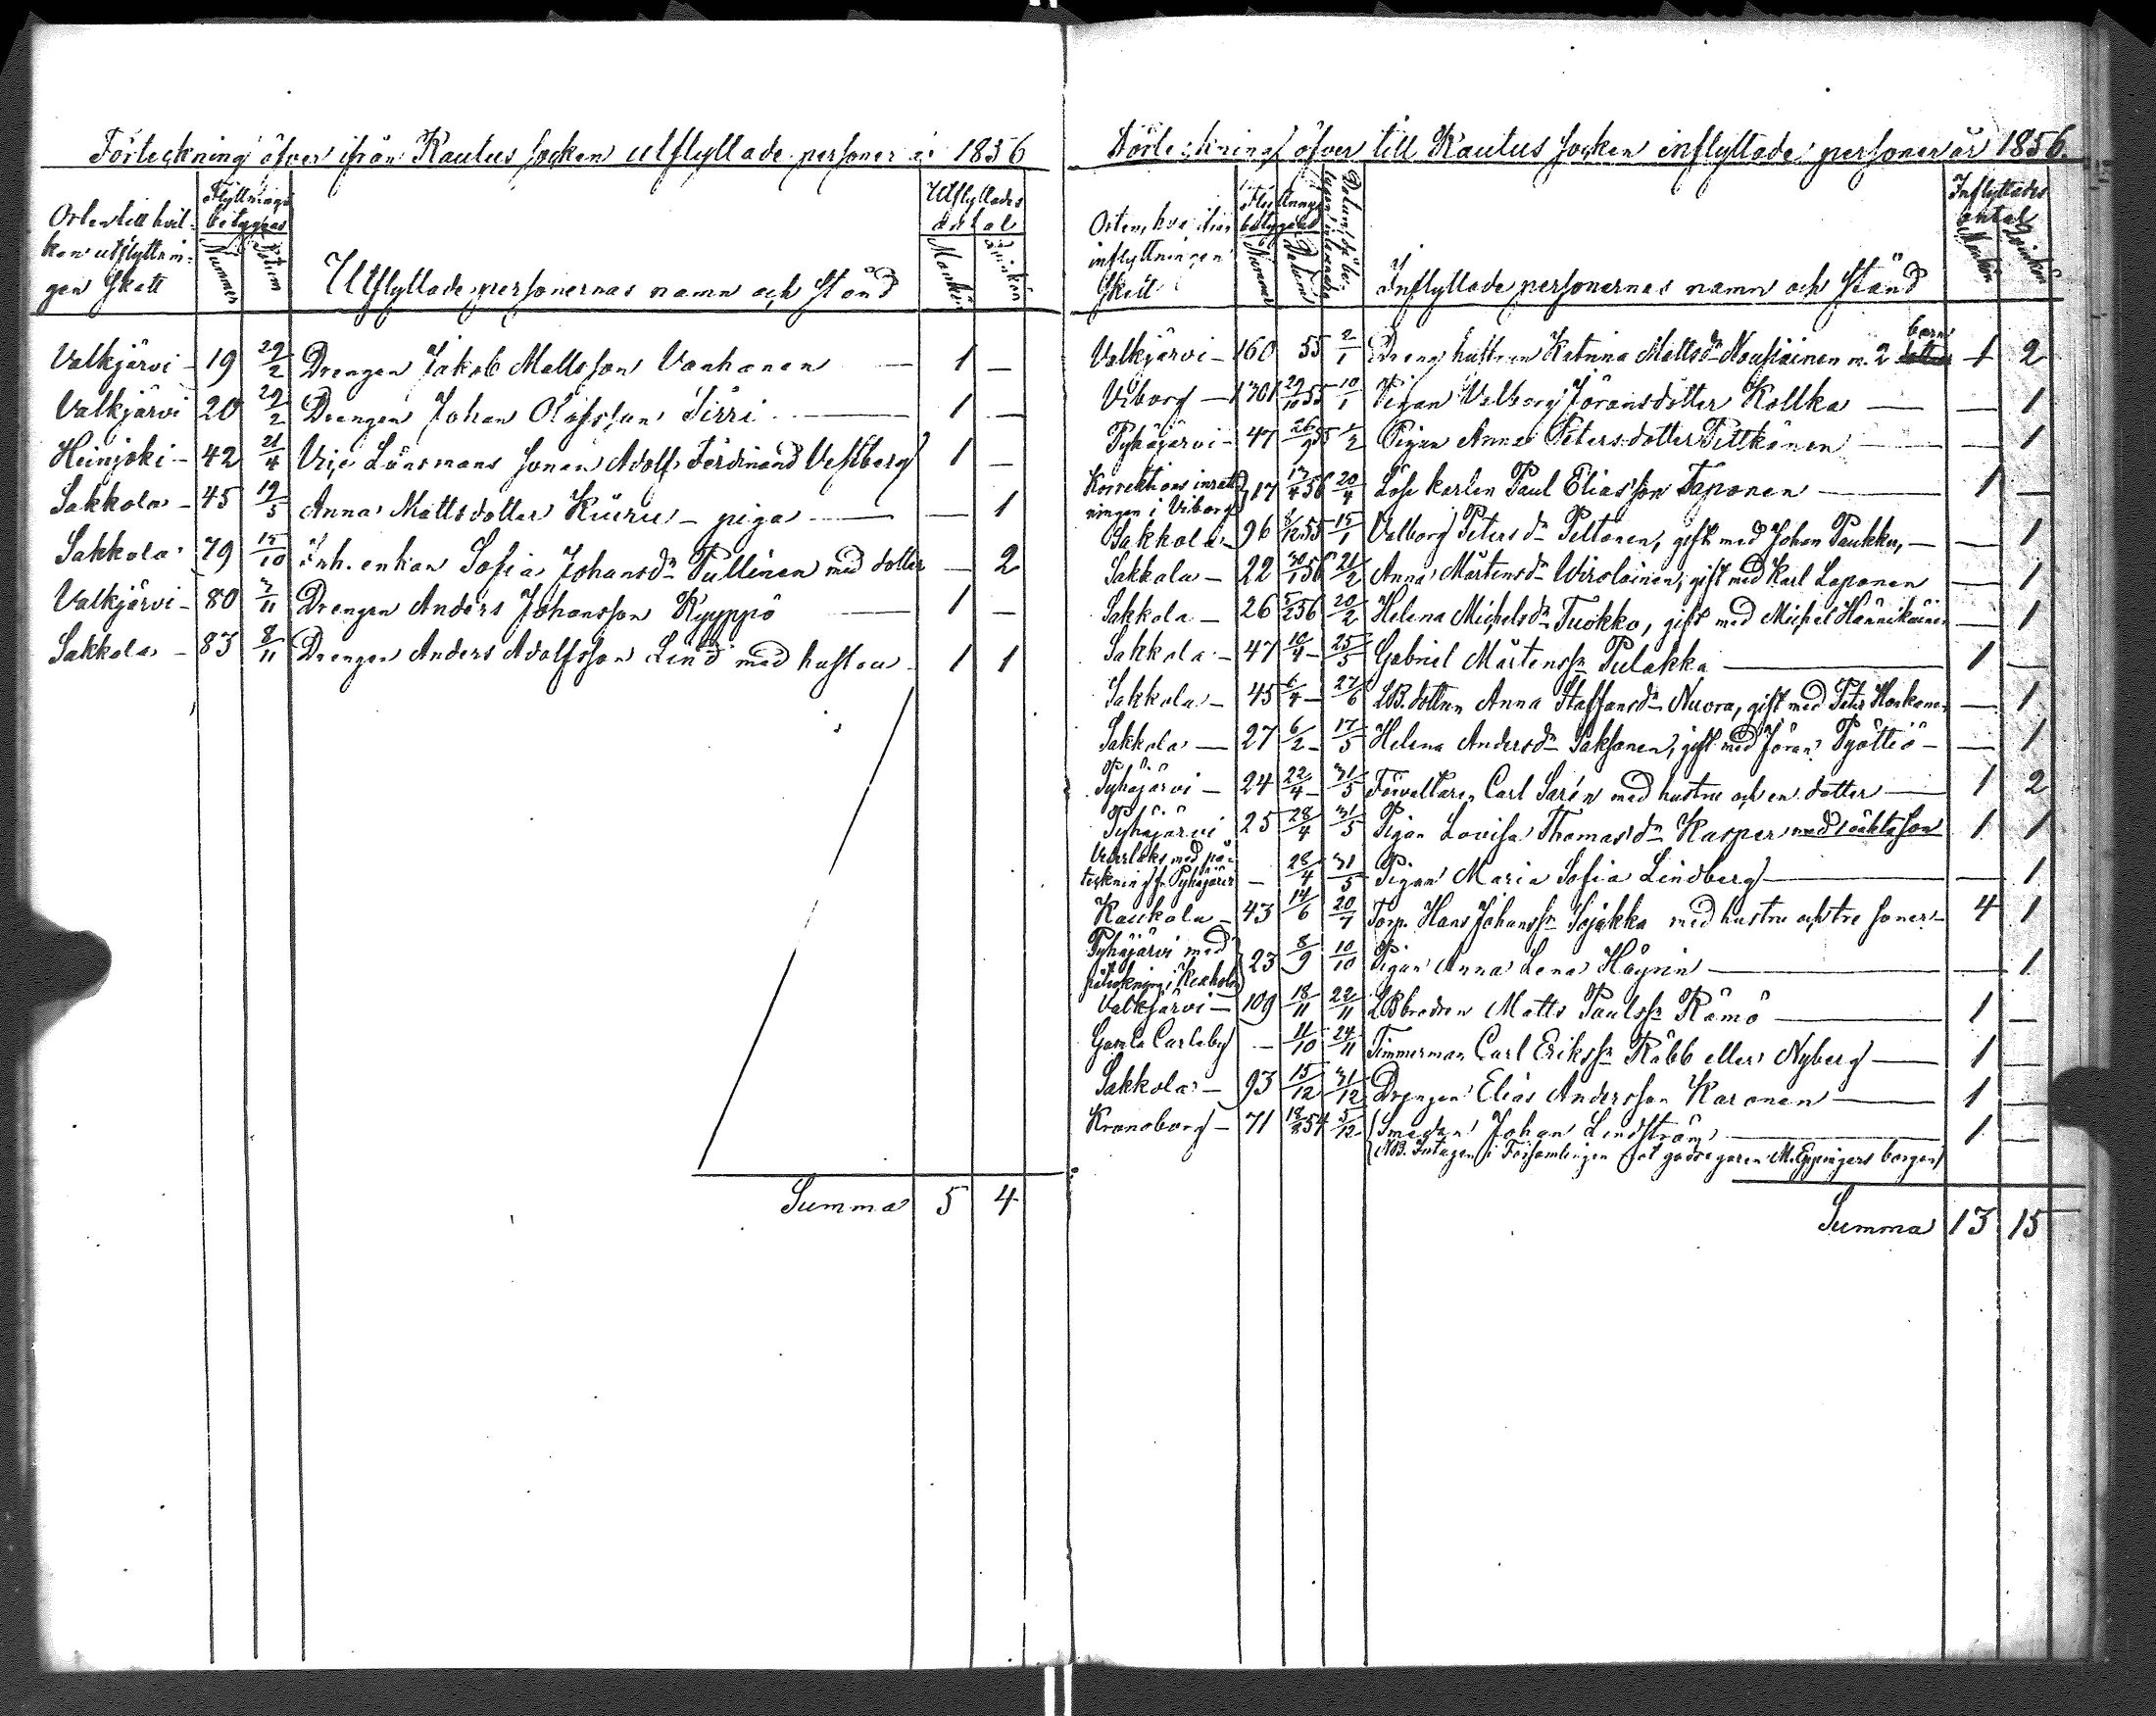 Förteckning öfver ifrån Rautus socken utflyttade personer år 1856
Orten till hvil-
ken utflyttnin-
gen skett
Flyttnings
betygens
Nummer
Datum
Utflyttade personernas namn och stånd
Utflyttades
antal
Mankön
Qvinkön
Valkjärvi - 19 29/2 Drengen Jakob Mattsson Vanhanen — 1 —
Valkjärvi 20 29/2 Drengen Johan Olofsson Sirri — 1 —
Heinjoki - 42 21/4 Vice Länsmans sonen Adolf Ferdinand Vestberg 1 —
Sakkola - 45 19/5 Anna Mattsdotter Kiuru - piga — — 1
Sakkola 79 15/10 Inh. enkan Sofia Johansdr Pullinen med dotter — 2
Valkjärvi - 80 3/11 Drengen Anders Johansson Kyyppö — 1 —
Sakkola - 83 8/11 Drengen Anders Adolfsson Lind med hustru - 1 1
Summa 5 4
Förteckning öfver till Rautus socken inflyttade personer år 1856.
Orten, hvarifrån
inflyttningen
skett
Flyttnings
betygens
Nummer
Datum
Datum, då be-
tygen inlemnades
Inflyttade personernas namn och stånd
Inflyttades
antal
Mankön
Qvinkön
barn
Valkjärvi - 160 55 2/1 Dreng hustrun Katrina Mattsdr Nousiainen m. 2 1 2
Viborg - 1301 29/10 55 10/1 Pigan Valborg Jöransdotter Kollka — — 1
Pyhäjärvi - 47 26/9 55 1/2 Pigan Anna Petersdotter Pittkänen — — 1
Korrektions inrätt-
ningen i Viborg } 17 17/4 56 20/4 Löse karlen Paul Eliasson Taponen — 1 —
Sakkola - 96 8/12 55 15/1 Valborg Petersdr Peltonen, gift med Johan Paukku, — — 1
Sakkola - 22 30/1 56 21/2 Anna Mårtensdr Wirolainen, gift med Karl Laponen — 1
Sakkola - 26 5/2 56 20/2 Helena Michelsdr Tuokko, gift med Michel Hännikäinen — 1
Sakkola - 47 10/4 - 25/5 Gabriel Mårtenssn Pulakka — 1 —
Sakkola - 45 6/4 - 27/6 LB. dottren Anna Staffansdr Nuora, gift med Petr Honkanen — 1
Sakkola — 27 6/2 - 17/5 Helena Andersdr Saksanen, gift med Jöran Pyöttiö - — 1
Pyhäjärvi - 24 22/4 - 31/5 Förvaltaren Carl Sarén med hustru och en dotter — 1 2
Pyhäjärvi 25 28/4 31/5 Pigan Lovisa Thomasdr Kasper med oäkta son 1 1
Vederlaks med på-
teckning fr. Pyhäjärvi — 28/4 31/5 Pigan Maria Sofia Lindberg — — 1
Kaukola - 43 14/6 20/7 Torp. Hans Johanssn Sojakka med hustru och tre söner - 4 1
Pyhäjärvi med
påteckning i Kexholm } 23 8/9 10/10 Pigan Anna Lena Häyrin — — 1
Valkjärvi - 109 18/11 22/11 LB brodren Matts Paulssn Rämö — 1 —
Gamla Carleby - 11/10 24/11 Timmerman Carl Erikssn Räbb eller Nyberg — 1 —
Sakkola - 93 15/12 31/12 Drengen Elias Andersson Karonen — 1 —
Kronoborg - 71 18/8 54 5/12 Smeden Johan Lindström — 1 —
NB. Intagen i Församlingen på godsegaren M. Eppingers borgen
Summa 13 15